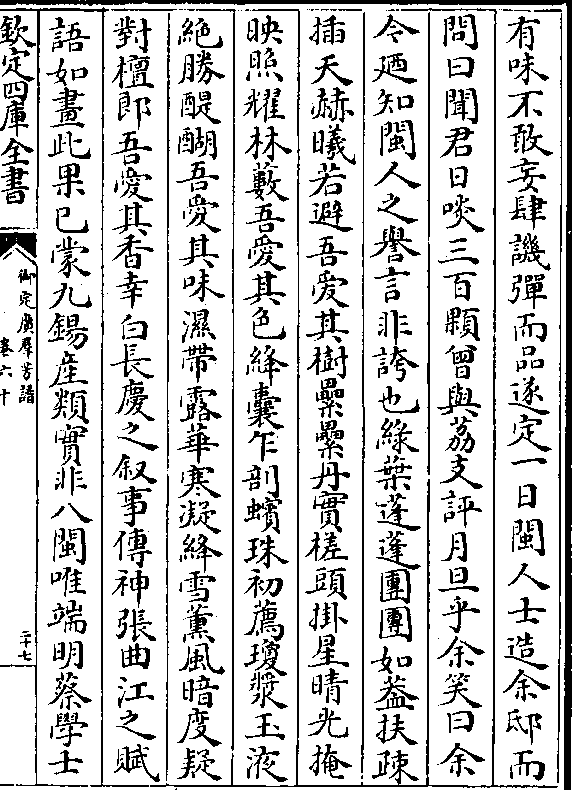 有味不敢妄肆譏彈而品遂定一日閩人士造余邸而
問曰聞君日啖三百顆曾與荔支評月旦乎余笑曰余
今廼知閩人之譽言非誇也綠葉蓬蓬團團如葢扶疎
插天赫曦若避吾愛其樹纍纍丹實槎頭掛星晴光掩
映照耀林藪吾愛其色絳囊乍剖蠙珠初薦瓊漿玉液
絶勝醍醐吾愛其味濕帶露華寒凝絳雪薰風暗度疑
對檀郎吾愛其香幸白長慶之叙事傳神張曲江之賦
語如畫此果已蒙九錫産類實非八閩唯端明蔡學士
欽定四庫全書
御定廣羣芳譜
卷六十
二十七